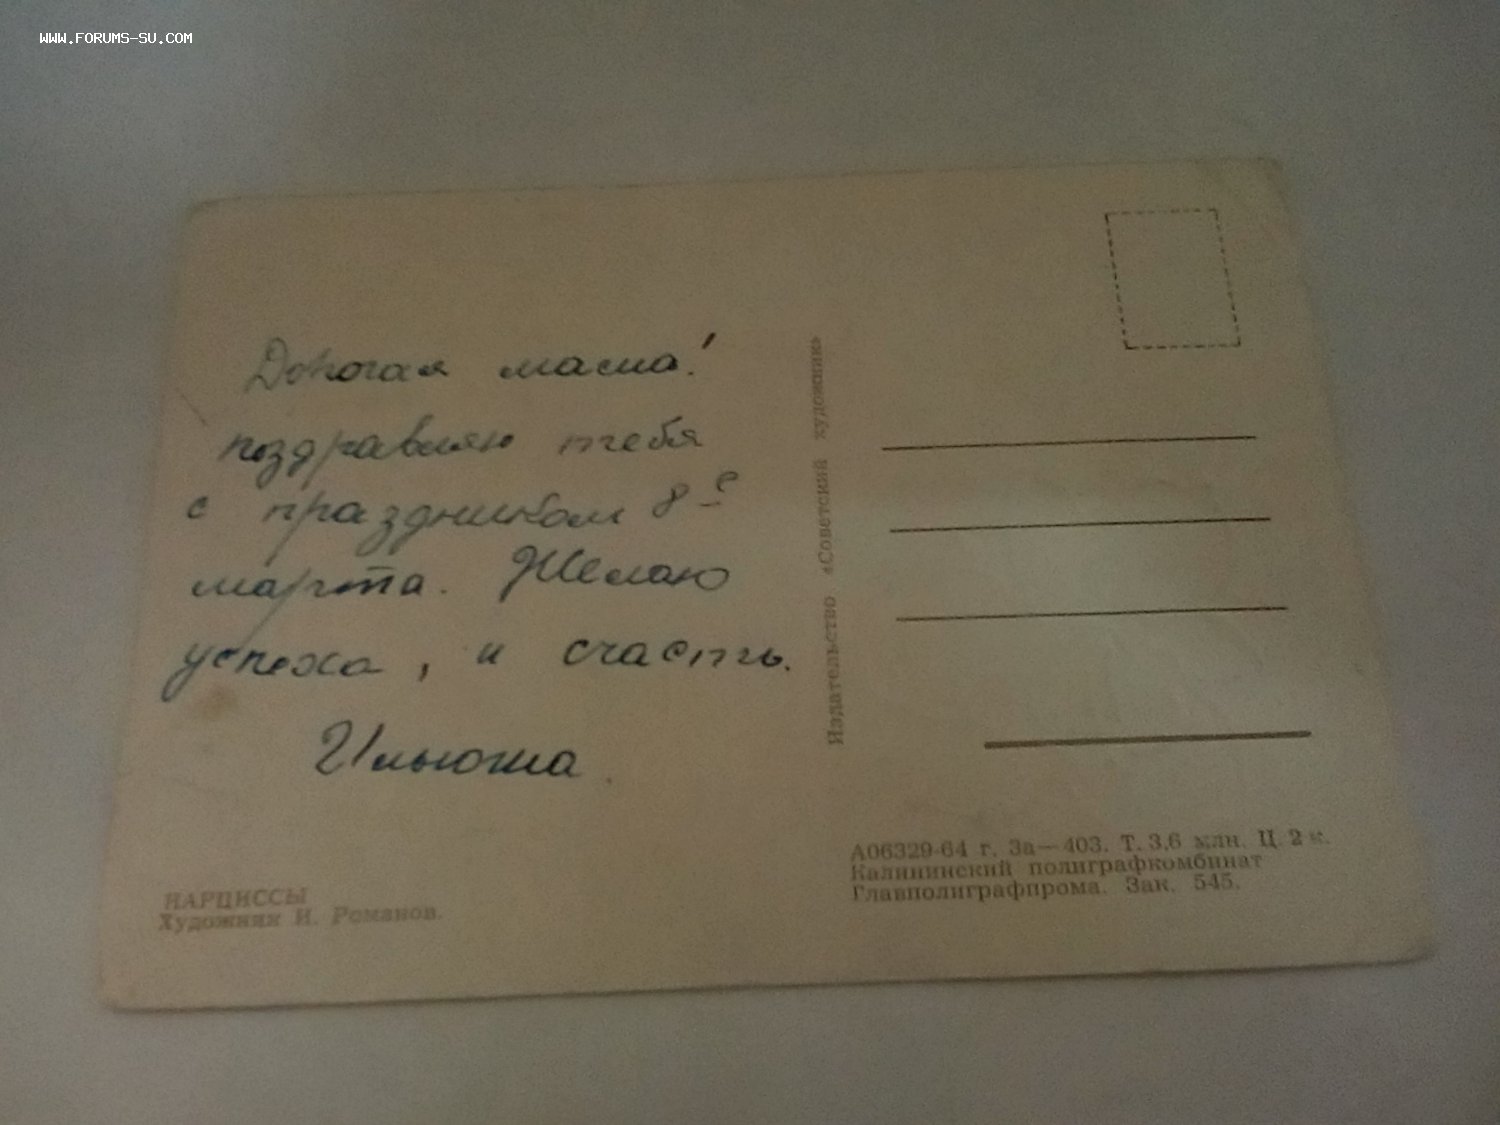 WWW.FORUMS-SU.COM
Дорогая мама!
поздравляю тебя
с праздником 8 – е
марта. Желаю
успеха, и счасть.
Ильюша
НАРЦИССЫ
Художник Н. Романов.
Издательство «Советский художник»
А06329-64 г. За—403. Т. 3,6 млн. Ц. 2 к.
Калининский полиграфкомбинат
Главполиграфпрома. Зак. 545.